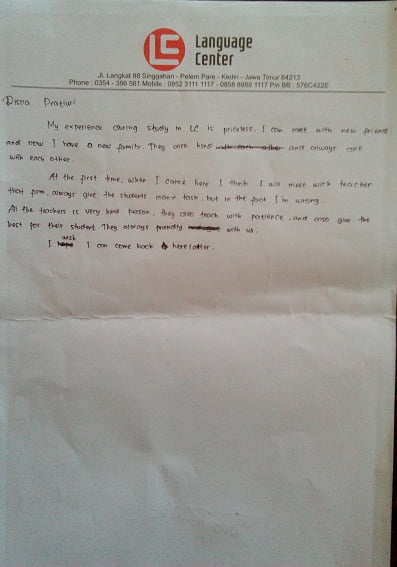 LC Language
Center
Jl. Langkat 88 Singgahan - Pelem Pare - Kediri - Jawa Timur 64213
Phone : 0354 - 396 561 Mobile : 0852 3111 1117 - 0858 6868 1117 Pin BB : 576C422E
Pratiwi
My experience during study in LC is priceless. I can meet with new friend
and now I have a new family. They also kind with each other and always care
with each other.
At the first time, when I came here I think I will meet with teacher
that firm, always give the students many task, but in the fact I'm wrong.
All the teachers is very kind person, they also teach with patience and also give the
best for their student. They always friendly with us.
wish
I hope I can come back to here latter.